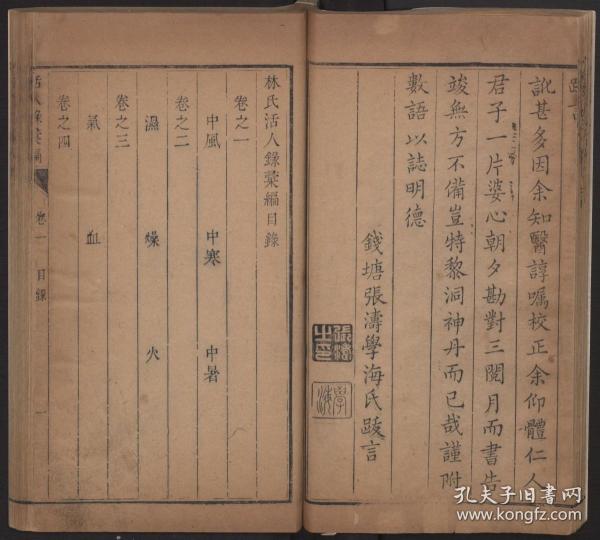 訛甚多因余知醫諄囑校正余仰體仁人
君子一片婆心朝夕勘對三閱月而書告
竣無方不備豈特黎洞神丹而已哉謹附
數語以誌明德
錢塘張濤學海氏跋言
張濤之印
學海
林氏活人錄彙編目錄
卷之一
中風 中寒 中暑
卷之二
濕 燥 火
卷之三
氣 血
卷之四
活人錄彙編 卷一 目錄 一
孔夫子旧书网
www.kongfz.com